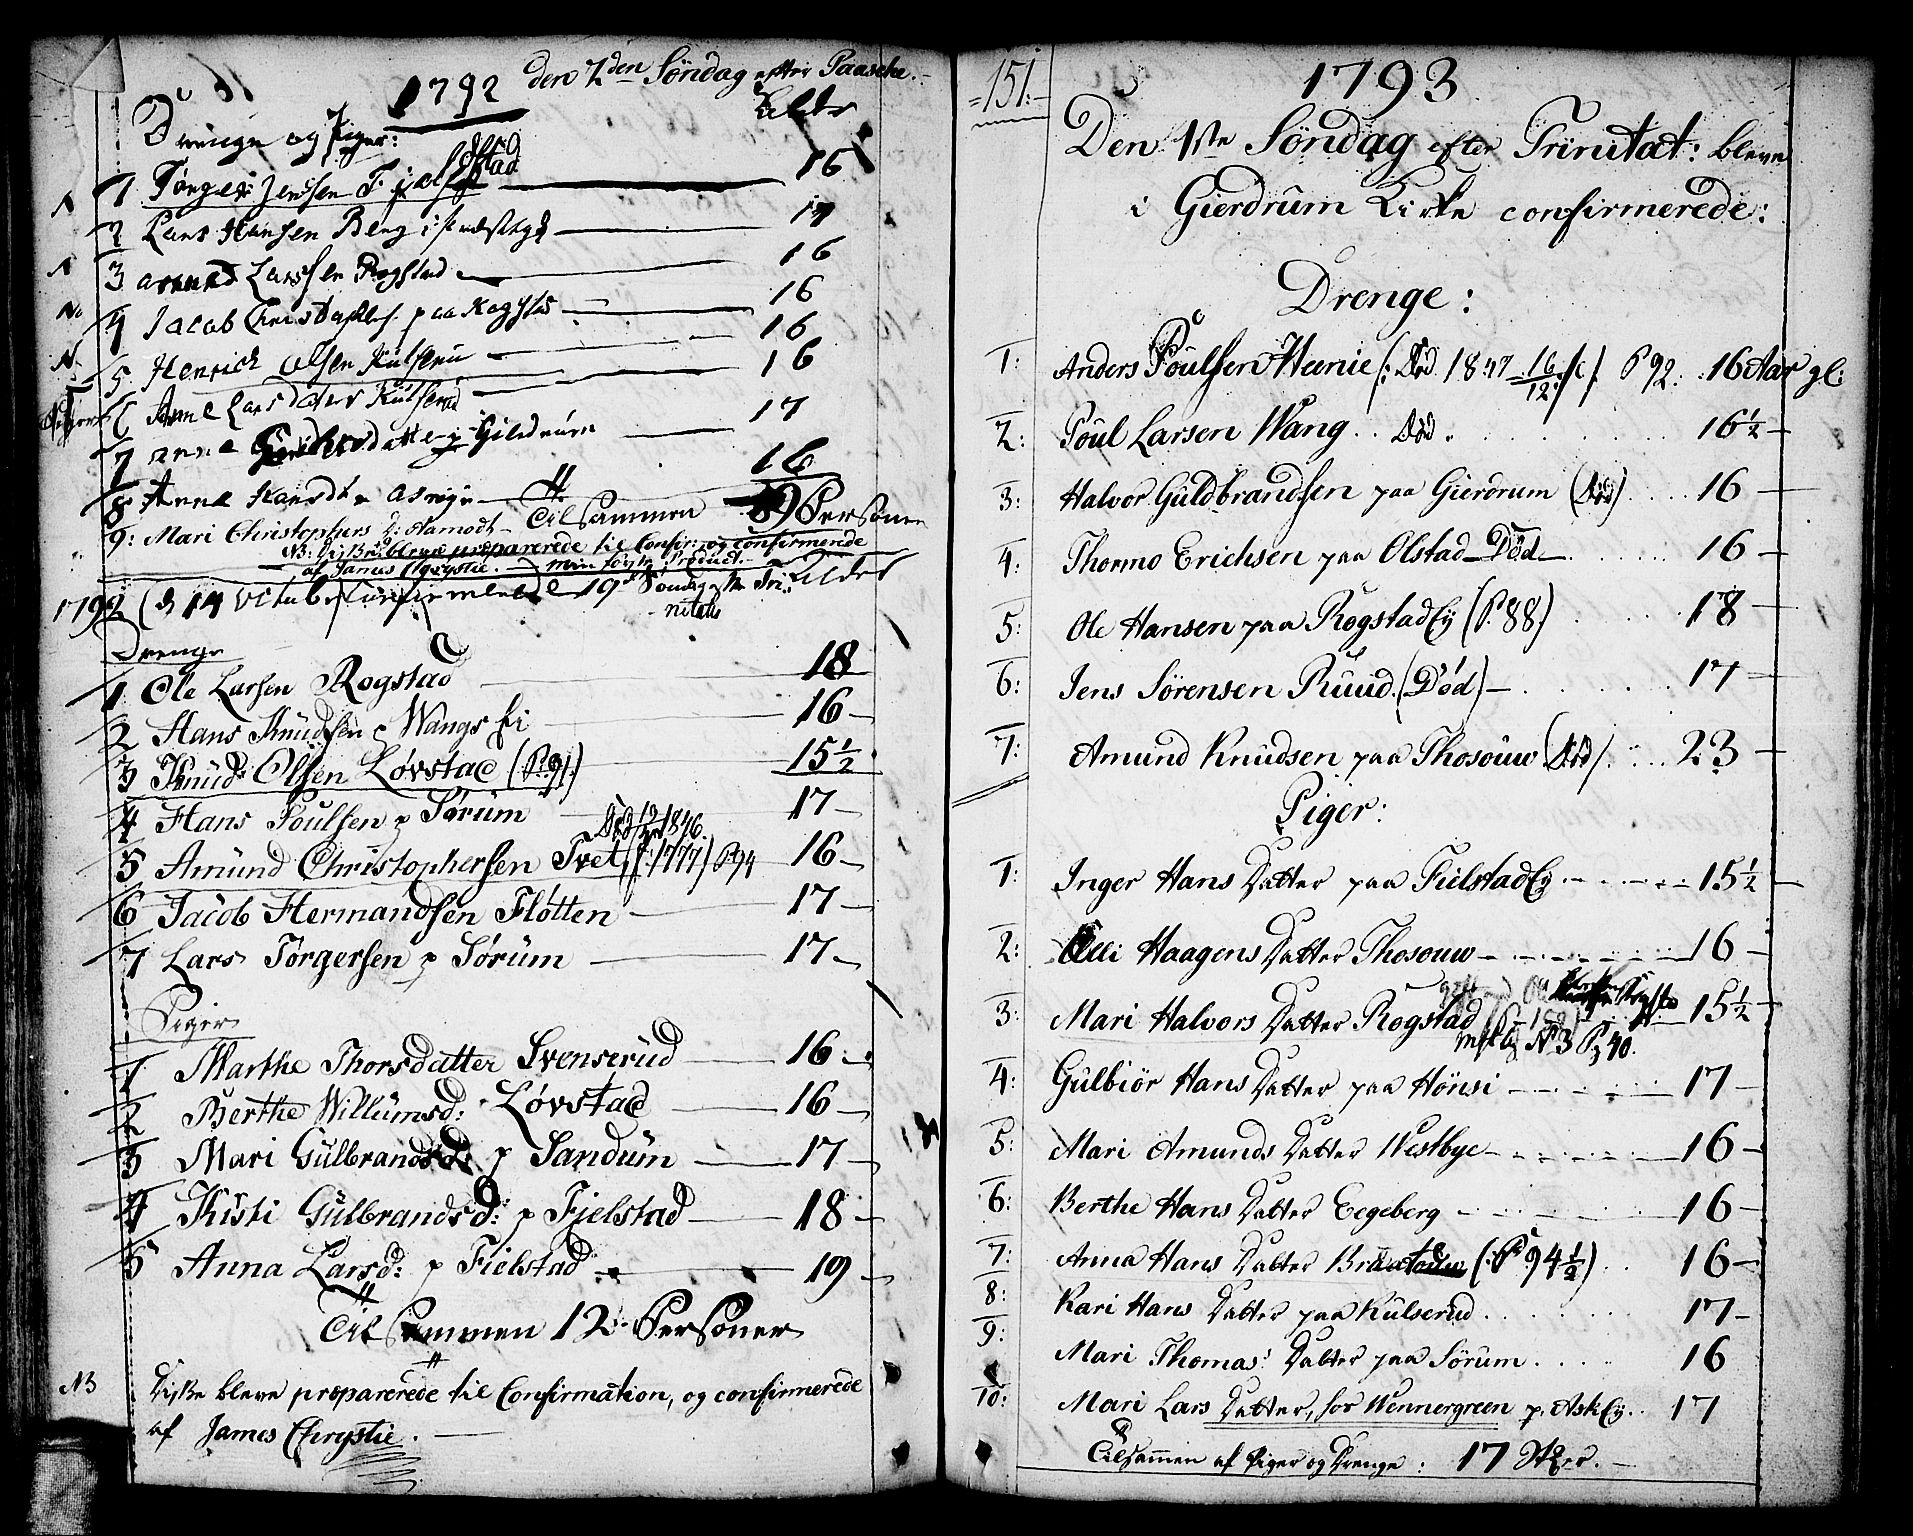 1792 den 2den Søndag efter Paaske.
Drenge og Piger: Alder
1 Torger Jenssen Fjælstad 16
2 Lars Hansen Berg 17
3 Larssen Rogstad 16
4 Jacob paa Rogstad 16
5 Henrich Olsen Kulseru 16
6 Anne Larsdater Kulserud 16
7 anne 17
8 Anne Hansdt 16
9: Mari Christophers D: Tilsammen 9 Personer
NB: Diske bleve præparerede til Confir: og confirmerede
af James Chrystie.
1792 d 14 Octob: confirmerede 19de Søndag efter Tri- Alder
nitatis
Drenge
1 Ole Larsen Rogstad 18
2 Hans Knudsen p Wangs Ei 16
3 Knud Olsen Løvstad (P. 91.) 15½
4 Hans Poulsen p Sørum 17
Død 1846.
5 Amund Christophersen Tvet (f. 1777) P94 16
6 Jacob Hermandsen Fløtten 17
7 Lars Torgersen p Sørum 17
Piger
1 Marthe Thorsdatter Svenserud 16
2 Berthe Willumsd: Løvstad 16
3 Mari Gulbrandsd: p Sandum 17
4 Kisti Gulbrandsd: p Fjelstad 18
5 Anna Larsd: p Fielstad 19
Tilsammen 12 Personer
NB Diske bleve præparerede til Confirmation, og confirmerede
af James Chrystie.
151. 1793
Den 1ste Søndag efter Trinitat: bleve
i Gierdrum Kirke confirmerede:
Drenge:
1: Anders Poulsen Heenie (: Død 1847 16/12 :) P 92. 16 Aar gl:
2: Poul Larsen Wang .. Død. 16½
3: Halvor Guldbrandsen paa Gierdrum (Død) 16
4: Thormo Erichsen paa Olstad Død 16
5: Ole Hansen paa Rogstad Ey (P. 88.) 18
6: Jens Sørensen Ruud. (Død) 17
7: Amund Knudsen paa Thosouw (Død) 23
Piger:
1: Inger Hans Datter paa Fielstad Ey 15½
2: Elli Haagens Datter Thosouw 16
3: Mari Halvors Datter Rogstad 15½
N 3 P, 40.
4: Gulbiør Hans Datter paa Hønsi 17
5: Mari Amunds Datter Westbye 16
6: Berthe Hans Datter Eegeberg 16
7: Anna Hans Datter (: P 94½) 16
8: Kari Hans Datter paa Kulserud 17
9: Mari Thomas' Datter paa Sørum 16
10: Mari Lars Datter, hos Wennergreen p. Ask Ey 17
Tilsammen af Piger og Drenge: 17 Stkr.